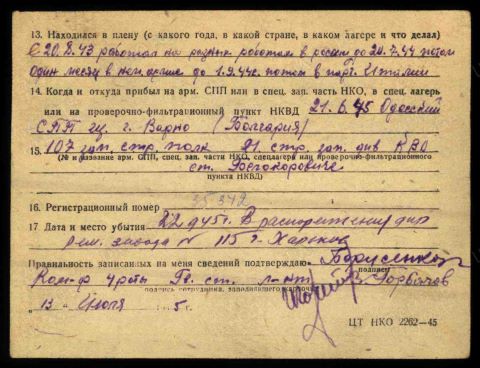 13. Находился в плену (с какого года, в какой стране, в каком лагере и что делал)
С 20.8.43 работал на разных работах в до 20.7.44 потом
один месяц в до 1.9.44г. потом в парт. Италии
14. Когда и откуда прибыл на арм. СПП или в спец. зап. часть НКО, в спец. лагерь
или на проверочно-фильтрационный пункт НКВД 21.6.45 Одесский
СПП из г. Варно (Болгария)
15. 107 зап. стр. полк 21 стр. зап. див КВО
(№ и название арм. СПП, спец. зап. части НКО, спецлагеря или проверочно-фильтрационного
ст.
пункта НКВД)
16. Регистрационный номер 35342
17 Дата и место убытия 22 9 45г. В распоряжение дир
Рем. завода № 115 г. Харьков
Правильность записанных на меня сведений подтверждаю.
подпись
Ком-р 4 роты Гв. ст. л-нт Горбачов
подпись сотрудника, заполнявшего карточку
"13" Июля 5 г.
ЦТ НКО 2262—45